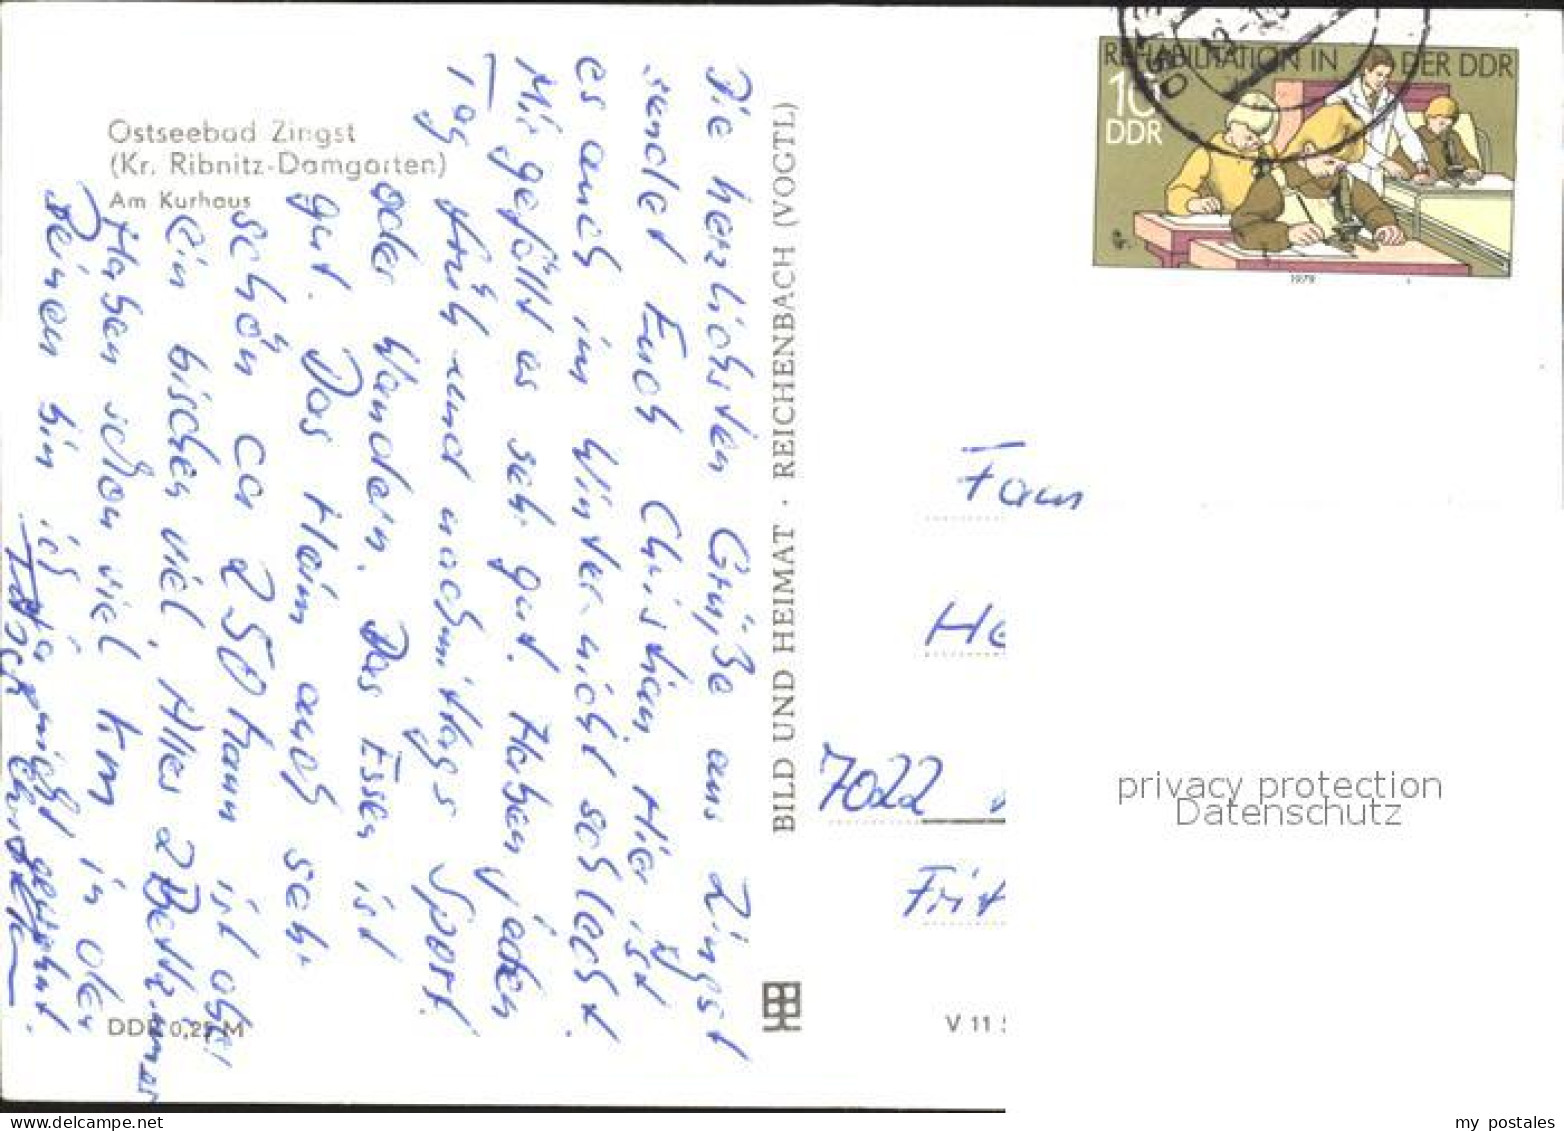 Ostseebad Zingst
(Kr. Ribnitz-Damgarten)
Am Kurhaus
Die herzlichsten Grüße aus Zingst
sendet Euch Christian. Hier ist
es auch im Winter nicht schlecht.
Mir gefällt es sehr gut. Haben jeden
Tag früh und nachmittags Sport
oder Wandern. Das Essen ist
gut. Das Heim auch sehr
schön ca 250 Mann ist das
ein bischen viel. Alles 2 Bettzimmer
Haben schon viel km in den
Beinen bin ich
ja nicht gewohnt.
Christian
DDR 0,25 M
BILD UND HEIMAT · REICHENBACH (VOGTL)
REHABILITATION IN DER DDR
10
DDR
1979
Fam
He
7022
Frit
V 11
privacy protection
Datenschutz
delcampe.net
my_postales